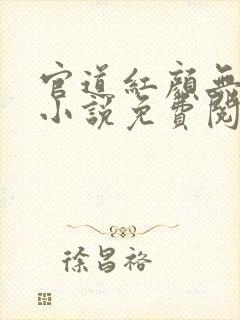 官道红颜无
小说免费阅
徐昌裕